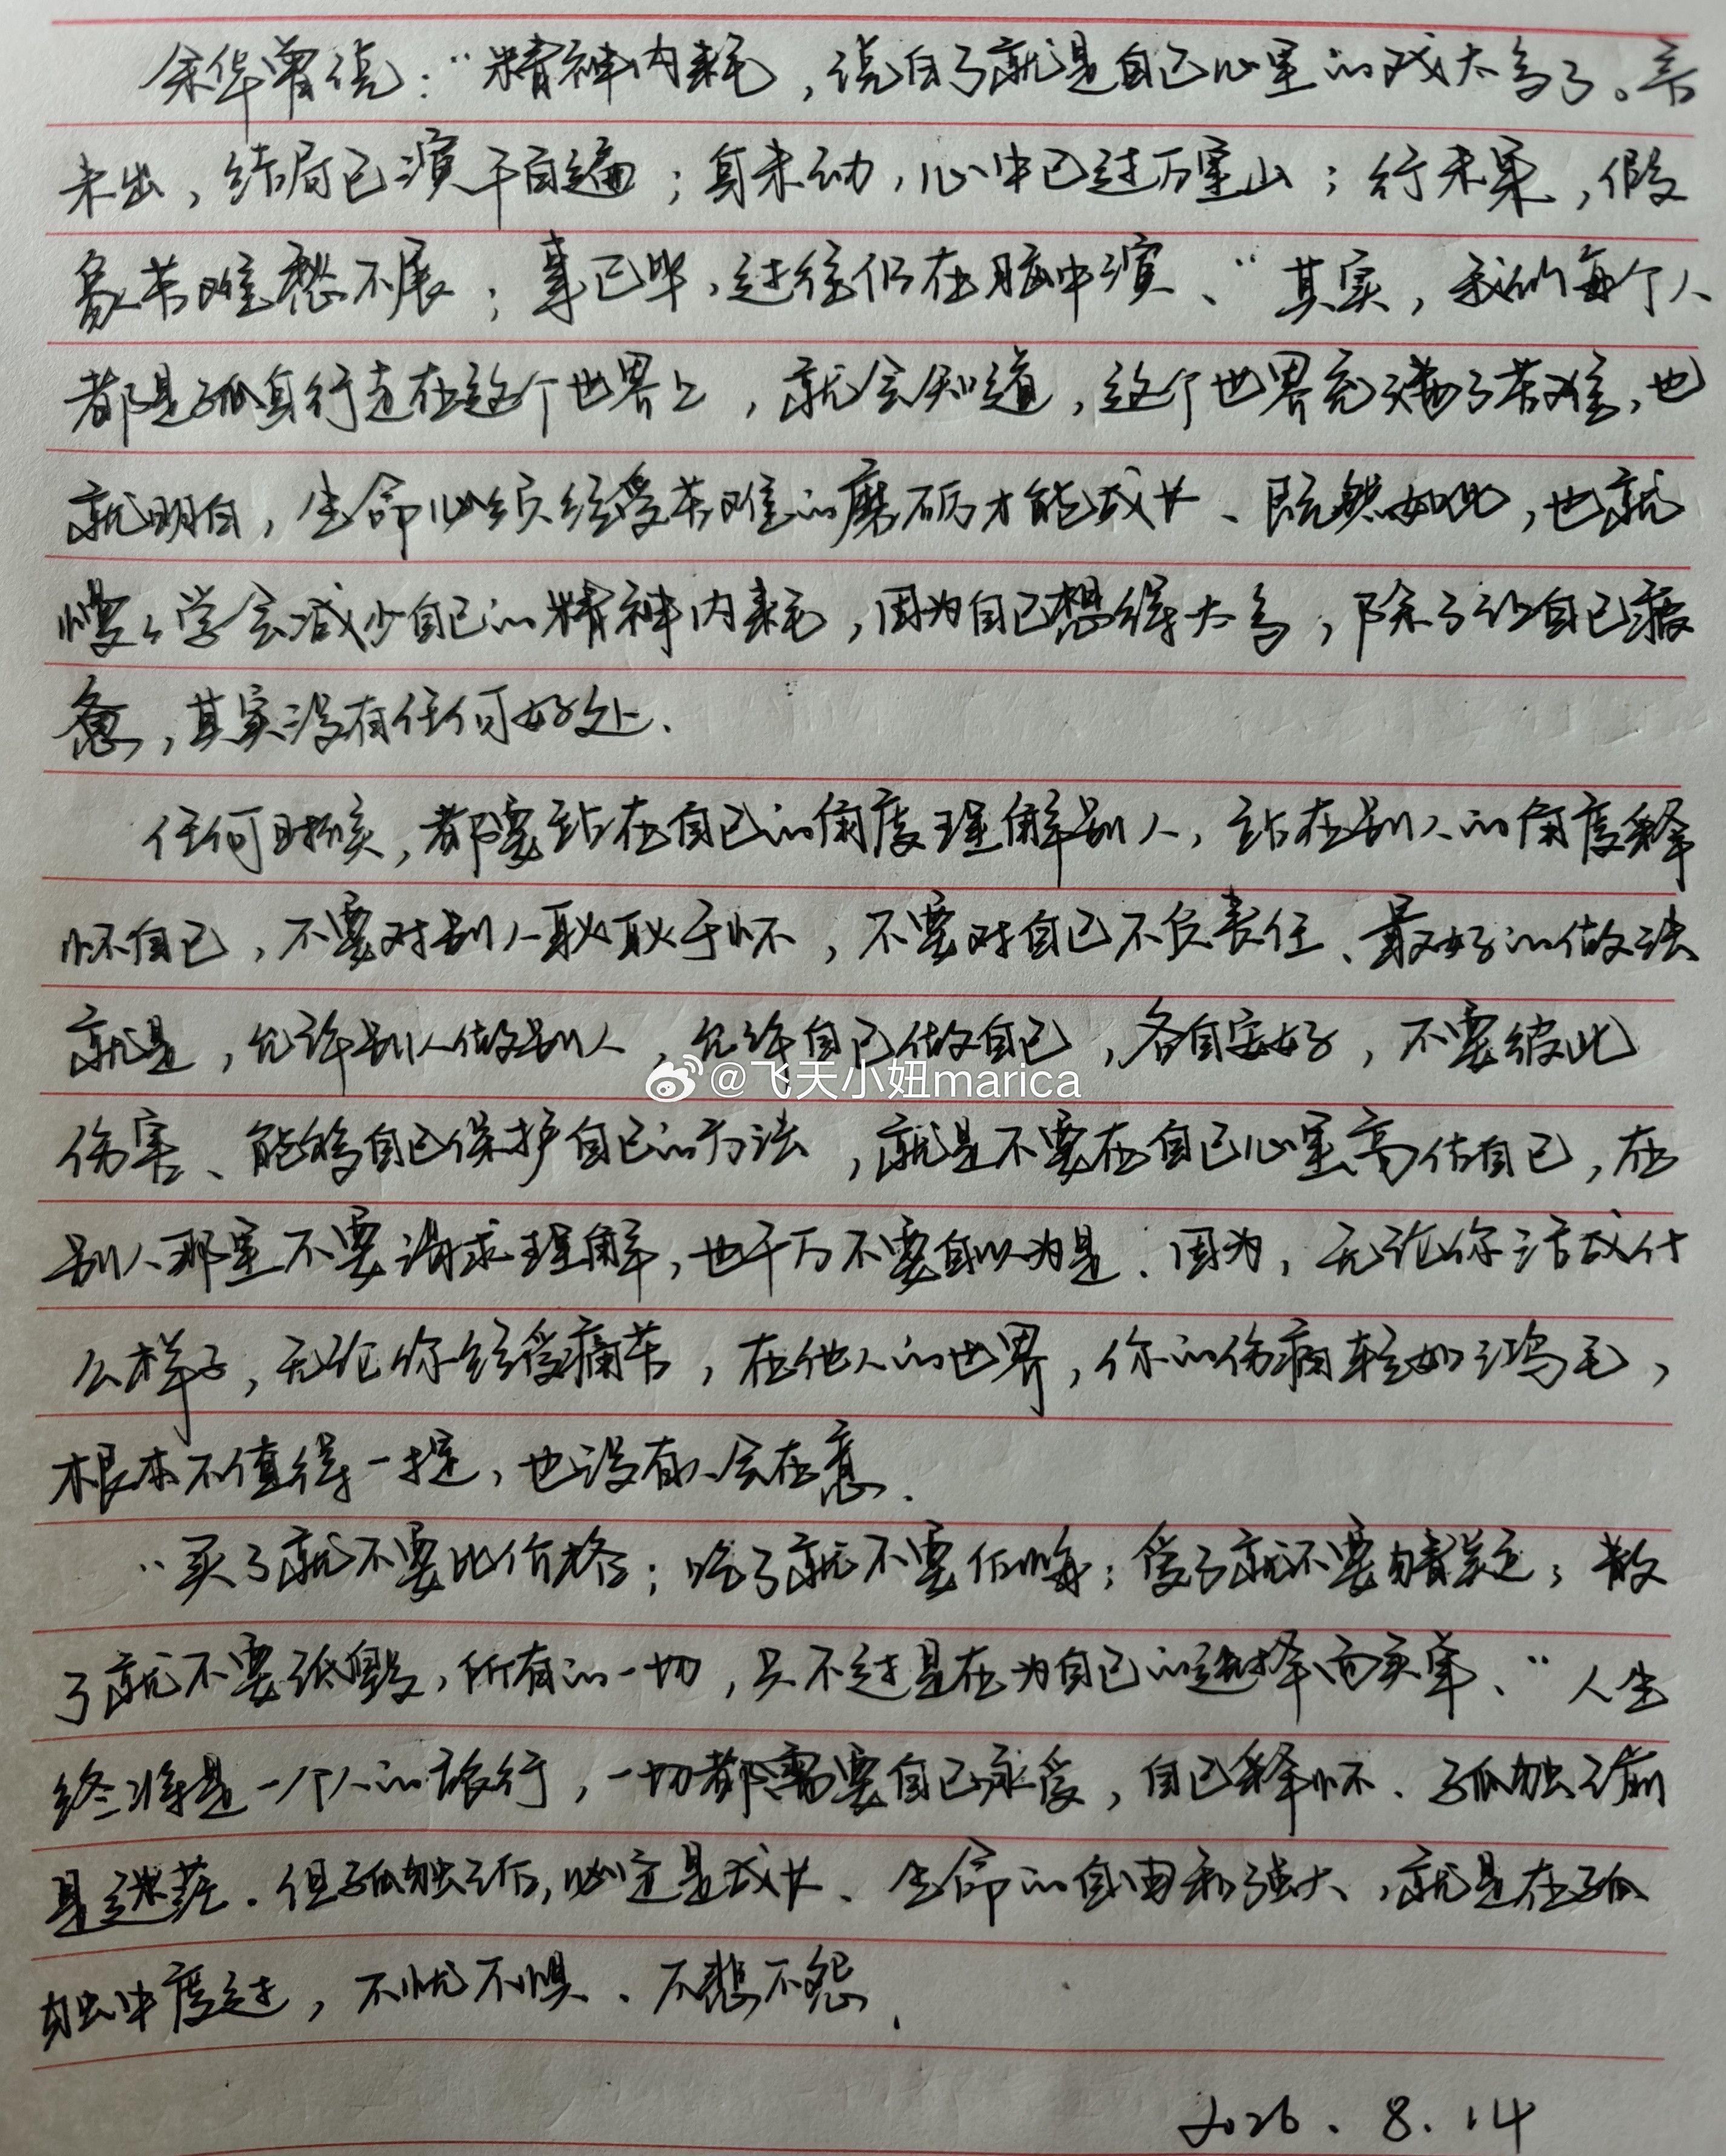 余华曾说：“精神内耗，说白了就是自己心里的戏太多了。言
未出，结局已演千百遍；身未动，心中已过万重山；行未果，假
象苦难愁不展；事已毕，过往仍在脑中演、”其实，我们每个人
都是孤身行走在这个世界上，就会知道，这个世界充满了苦难，也
就明白，生命必须经受苦难的磨砺才能成长、既然如此，也就
慢々学会减少自己的精神内耗，因为自己想得太多，除了让自己疲
惫，其实没有任何好处.
任何时候，都要站在自己的角度理解别人，站在别人的角度释
怀自己，不要对别人耿耿于怀，不要对自己不负责任、最好的做法
就是，允许别人做别人，允许自己做自己，各自安好，不要彼此
@飞天小妞marica
伤害、能够自己保护自己的方法，就是不要在自己心里高估自己，在
别人那里不要请求理解，也千万不要自以为是.因为，无论你活成什
么样子，无论你经受痛苦，在他人的世界，你的伤痛轻如鸿毛，
根本不值得一提，也没有人会在意.
“买了就不要比价格；吃了就不要后悔；爱了就不要猜疑；散
了就不要诋毁，所有的一切，只不过是在为自己的选择而买单、”人生
终将是一个人的旅行，一切都需要自己承受，自己释怀、孤独之前
是迷茫.但孤独之后，必定是成长、生命的自由和强大、，就是在孤
独中度过，不忧不惧、不悲不怨.
2026.8.14